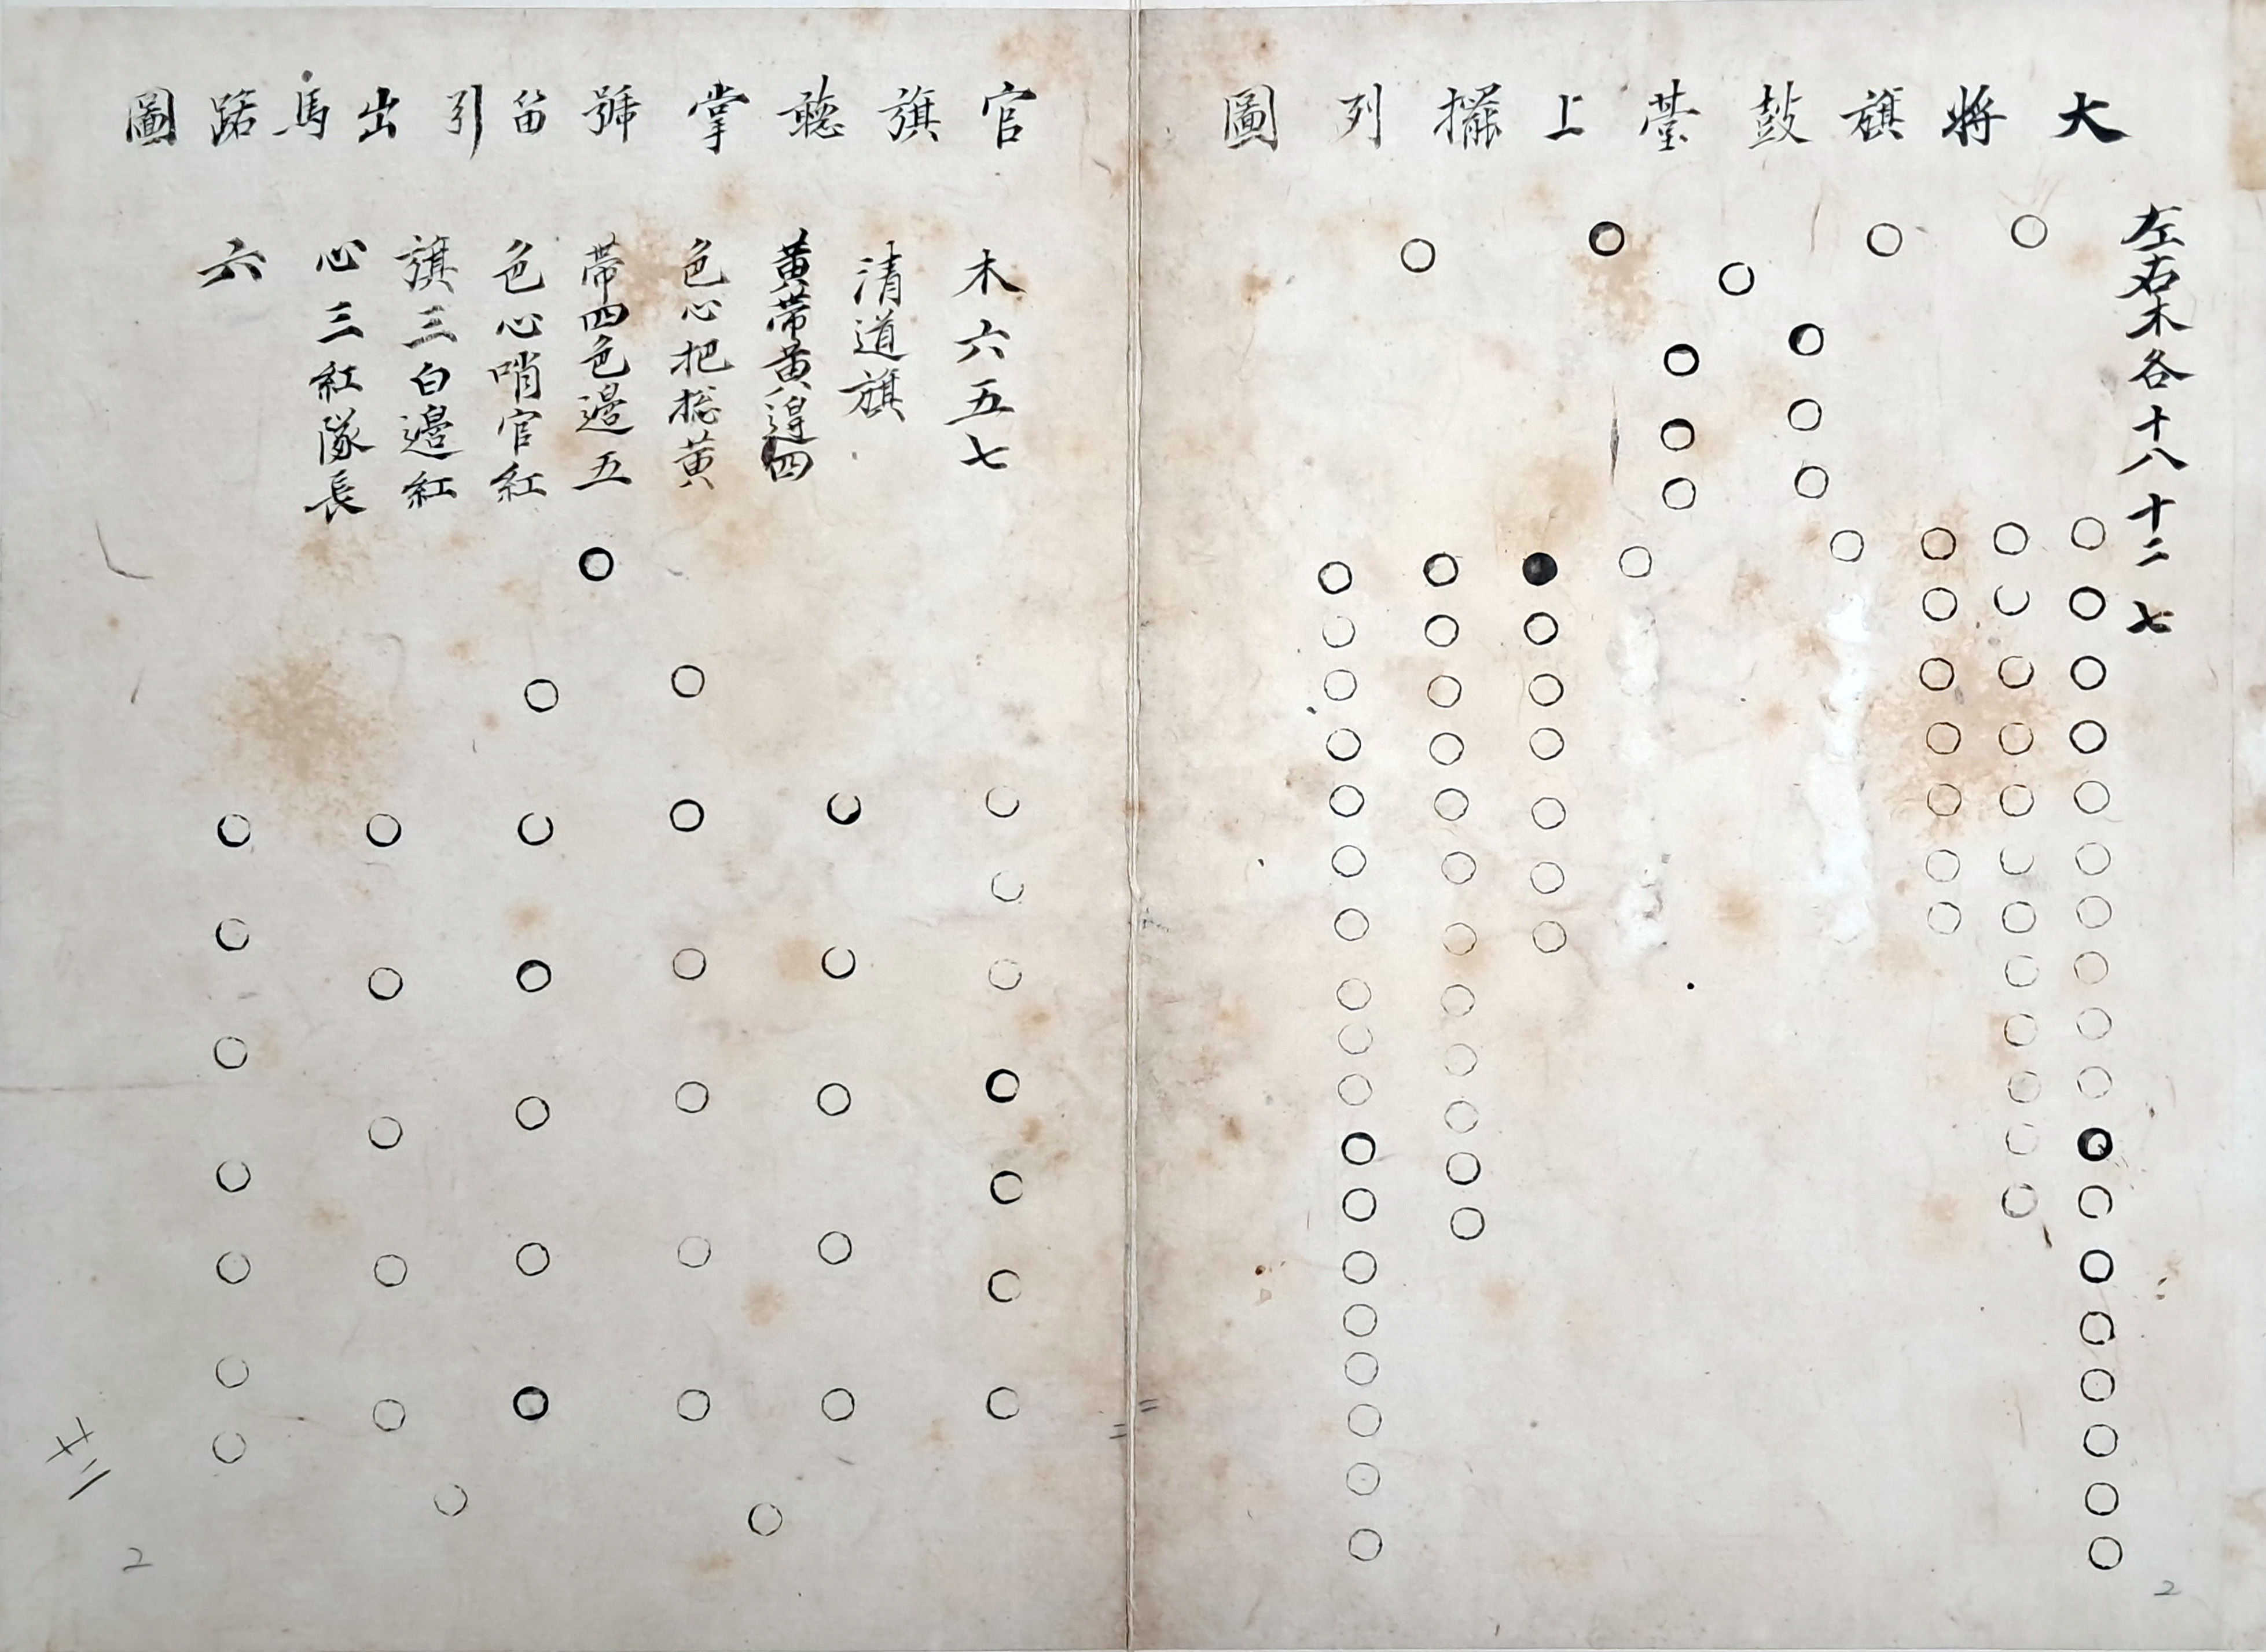 大將旗鼓䑓上擺列圖
左右木各十八十二七
2
官旗聽掌號笛引出馬路圖
木六五七
清道旗
黃帶黃邊四
色心把捴黃
帶四色邊五
色心哨官紅
旗三白邊紅
心三紅隊長
六
2